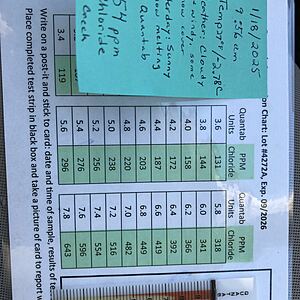 1/18/2025
am
Cloudy
windy, some
Sunny
snow melting
Quantab
54 ppm
Chloride
Creek
Chart: Lot #4272A, Exp. 09/2026
3.4 119
Quantab Units PPM Chloride
3.6 131
3.8 144
4.0 158
4.2 172
4.4 187
4.6 203
4.8 220
5.0 238
5.2 256
5.4 276
5.6 296
Quantab Units PPM Chloride
5.8 318
6.0 341
6.2 366
6.4 392
6.6 419
6.8 449
7.0 482
7.2 516
7.4 554
7.6 596
7.8 643
QUANTAB
Write on a post-it and stick to card: date and time of sample, results of te
Place completed test strip in black box and take a picture of card to report